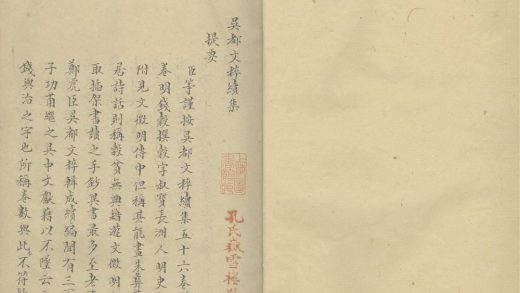 吳都文粹續集
提要
臣等謹按吳都文粹續集五十六卷
卷明錢穀撰穀字叔寶長洲人明史
附見文徵明傳中但稱其能畫朱彝
居詩話則稱穀貧無典籍遊文徵明
取插架書讀之手鈔異書最多至老
鄭虎臣吳都文粹輯成續編聞有三
子功甫繼之吳中文獻藉以不墜云
錢與治之字也所稱卷數與此不符
孔氏嶽雪樓